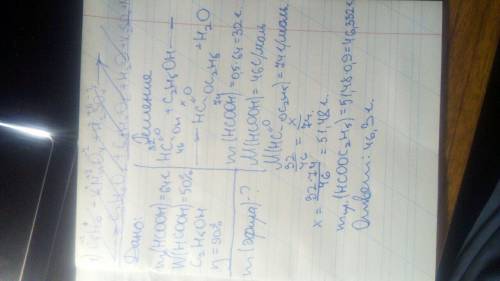 Дано:
m(HCOOH)=64г
W(HCOOH)=50%
C₂H₅OH
η=90%
m(эфира)-?
Решение
32 x
HC=O OH + C₂H₅OH →
46
→ HC=O OC₂H₅ + H₂O
74
m(HCOOH)=0,5·64=32г
M(HCOOH)=46г/моль
M(HC=O OC₂H₅)=74г/моль
32/46 = x/74
x = 32·74/46 = 51,48г.
mпр(HCOOC₂H₅)=51,48·0,9=46,332г
Ответ: 46,3г